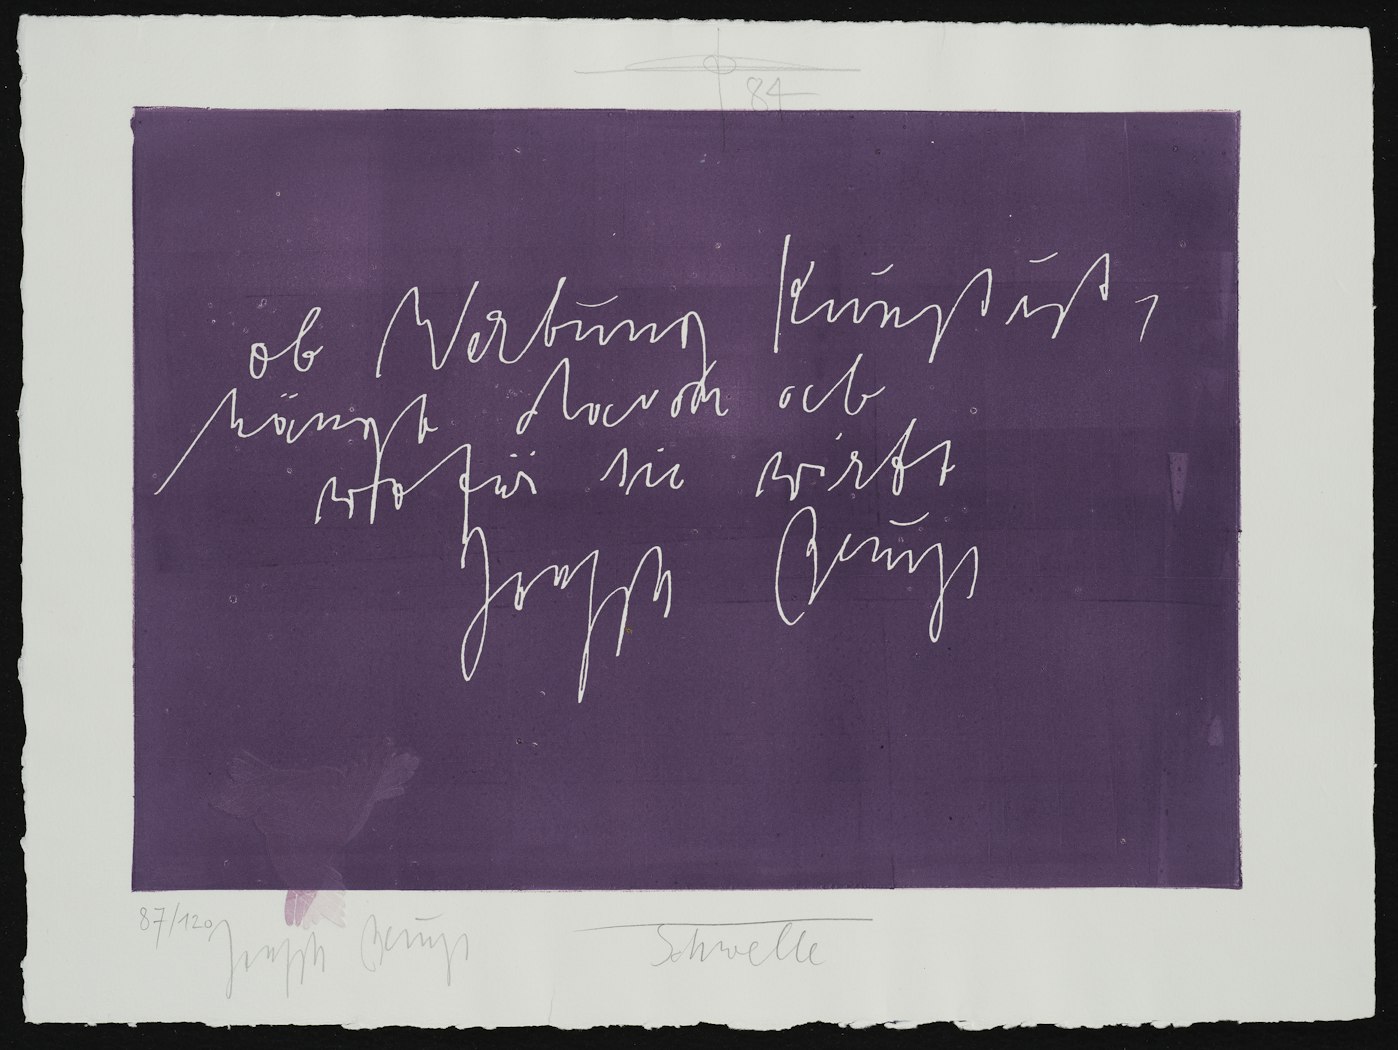 84
ob Werbung Kunst ist,
hängt davon ab
wofür sie wirbt
Joseph Beuys
87/120 Joseph Beuys
Schwelle